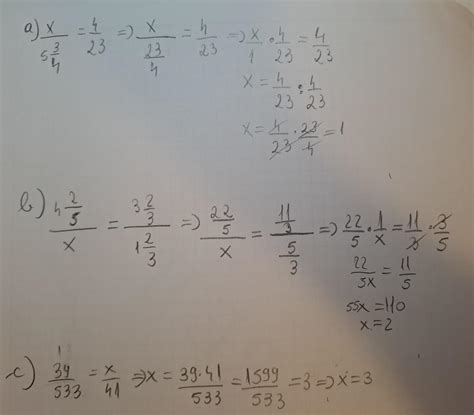 a) x / 5 3/4 = 4/23 => x / 23/4 = 4/23 => x/1 · 4/23 = 4/23
x = 4/23 : 4/23
x = 4/23 · 23/4 = 1
b) 4 2/5 / x = 3 2/3 / 1 2/3 => 22/5 / x = 11/3 / 5/3 => 22/5 · 1/x = 11/3 · 3/5
22/5x = 11/5
55x = 110
x = 2
c) 39/533 = x/41 => x = 39·41/533 = 1599/533 = 3 => x = 3